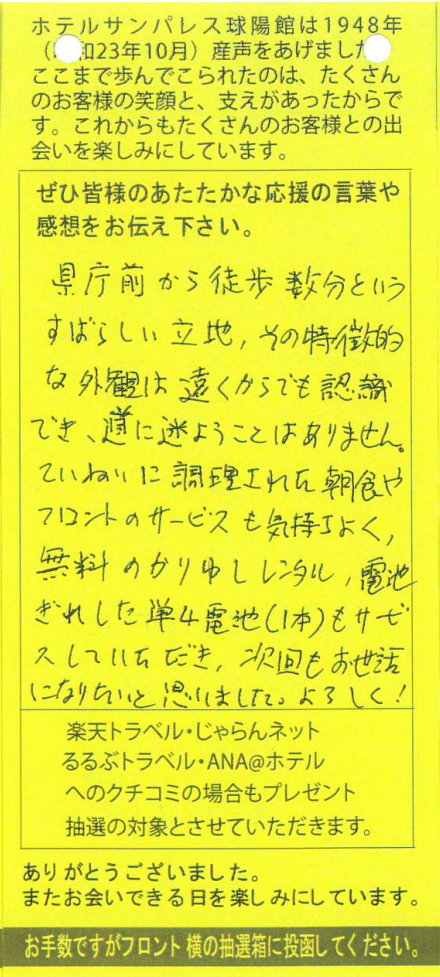 ホテルサンパレス球陽館は1948年
（和23年10月）産声をあげました
ここまで歩んでこられたのは、たくさん
のお客様の笑顔と、支えがあったからで
す。これからもたくさんのお客様との出
会いを楽しみにしています。
ぜひ皆様のあたたかな応援の言葉や
感想をお伝え下さい。
県庁前から徒歩数分という
すばらしい立地，その特徴的
な外観は遠くからでも認識
でき、道に迷ようことはありません。
ていねいに調理された朝食や
フロントのサービスも気持ちよく，
無料のかりゆしレンタル，電池
ぎれした単4電池(1本)もサービ
スしていただき，次回もお世話
になりたいと思いました。よろしく！
楽天トラベル・じゃらんネット
るるぶトラベル・ANA@ホテル
へのクチコミの場合もプレゼント
抽選の対象とさせていただきます。
ありがとうございました。
またお会いできる日を楽しみにしています。
お手数ですがフロント横の抽選箱に投函してください。